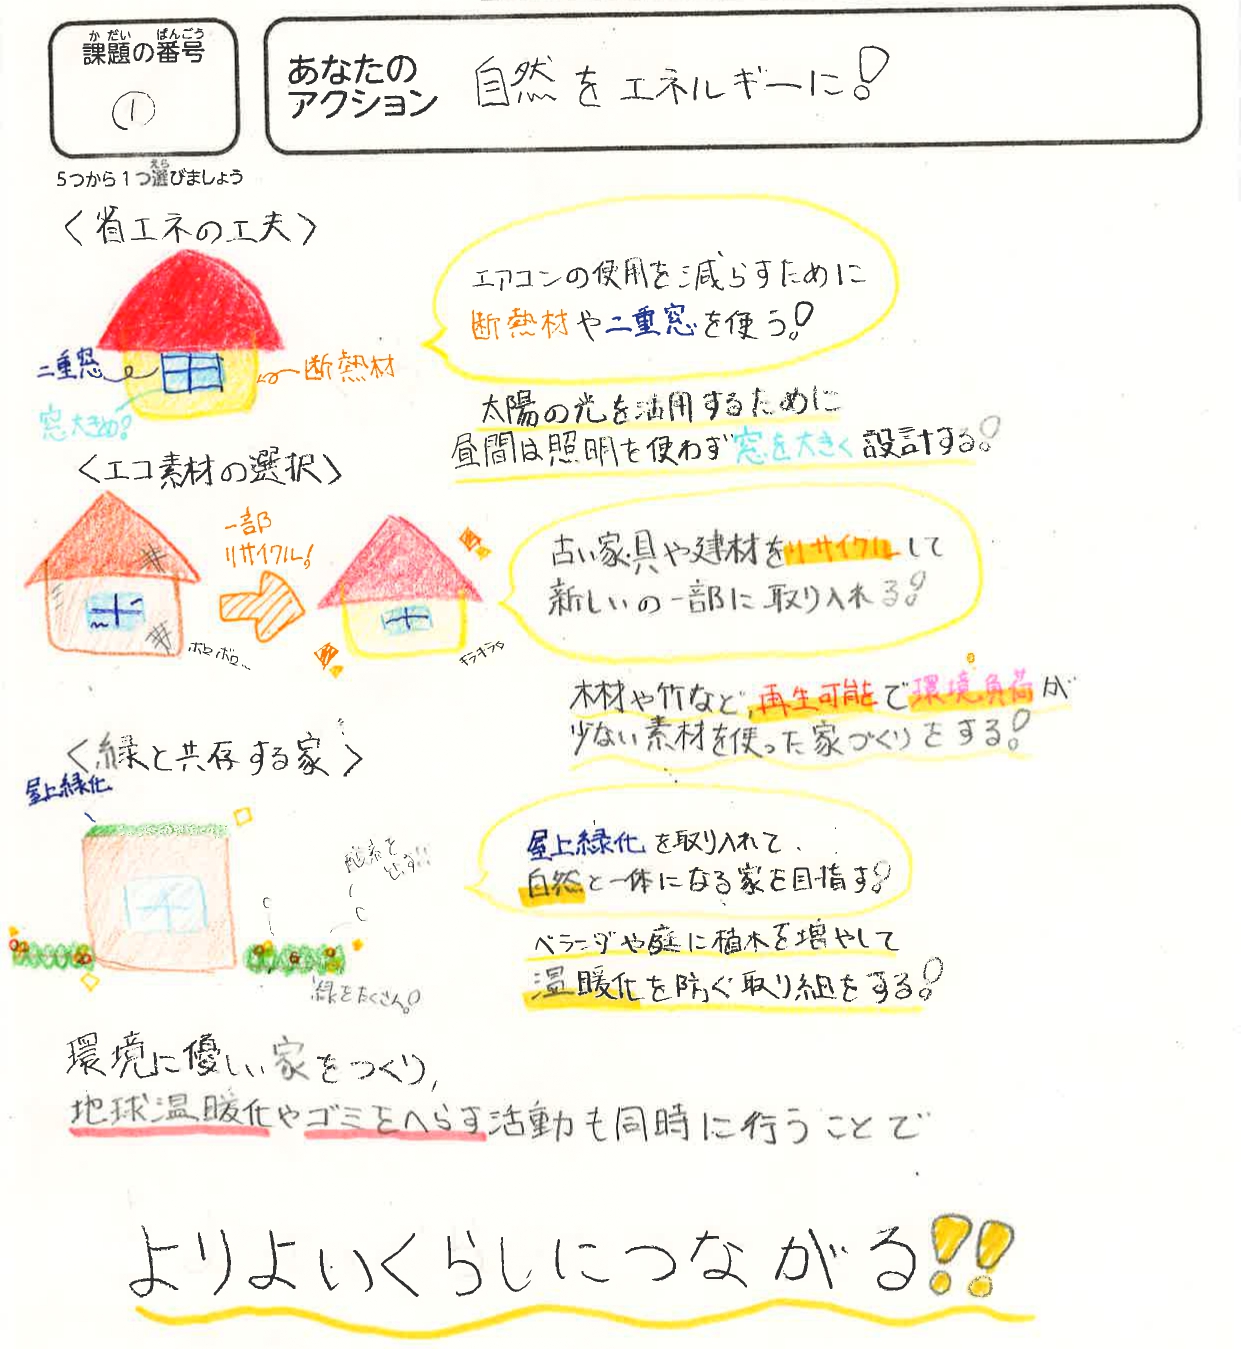 か だい ばんごう
課題の番号
①
5つから1つ選びましょう
えら
あなたの
アクション
自然をエネルギーに!
〈省エネの工夫〉
二重窓
断熱材
窓大きめ!
エアコンの使用を減らすために
断熱材や二重窓を使う!
太陽の光を活用するために
昼間は照明を使わず窓を大きく設計する!
〈エコ素材の選択〉
一部
リサイクル!
ボロボロ…
キラキラ
古い家具や建材をリサイクルして
新しいの一部に取り入れる!
木材や竹など、再生可能で環境負荷が
少ない素材を使った家づくりをする!
〈緑と共存する家〉
屋上緑化
酸素を
だす!!
緑をたくさん!
屋上緑化を取り入れて、
自然と一体になる家を目指す!
ベランダや庭に植木を増やして
温暖化を防ぐ取り組をする!
環境に優しい家をつくり、
地球温暖化やゴミをへらす活動も同時に行うことで
よりよいくらしにつながる!!